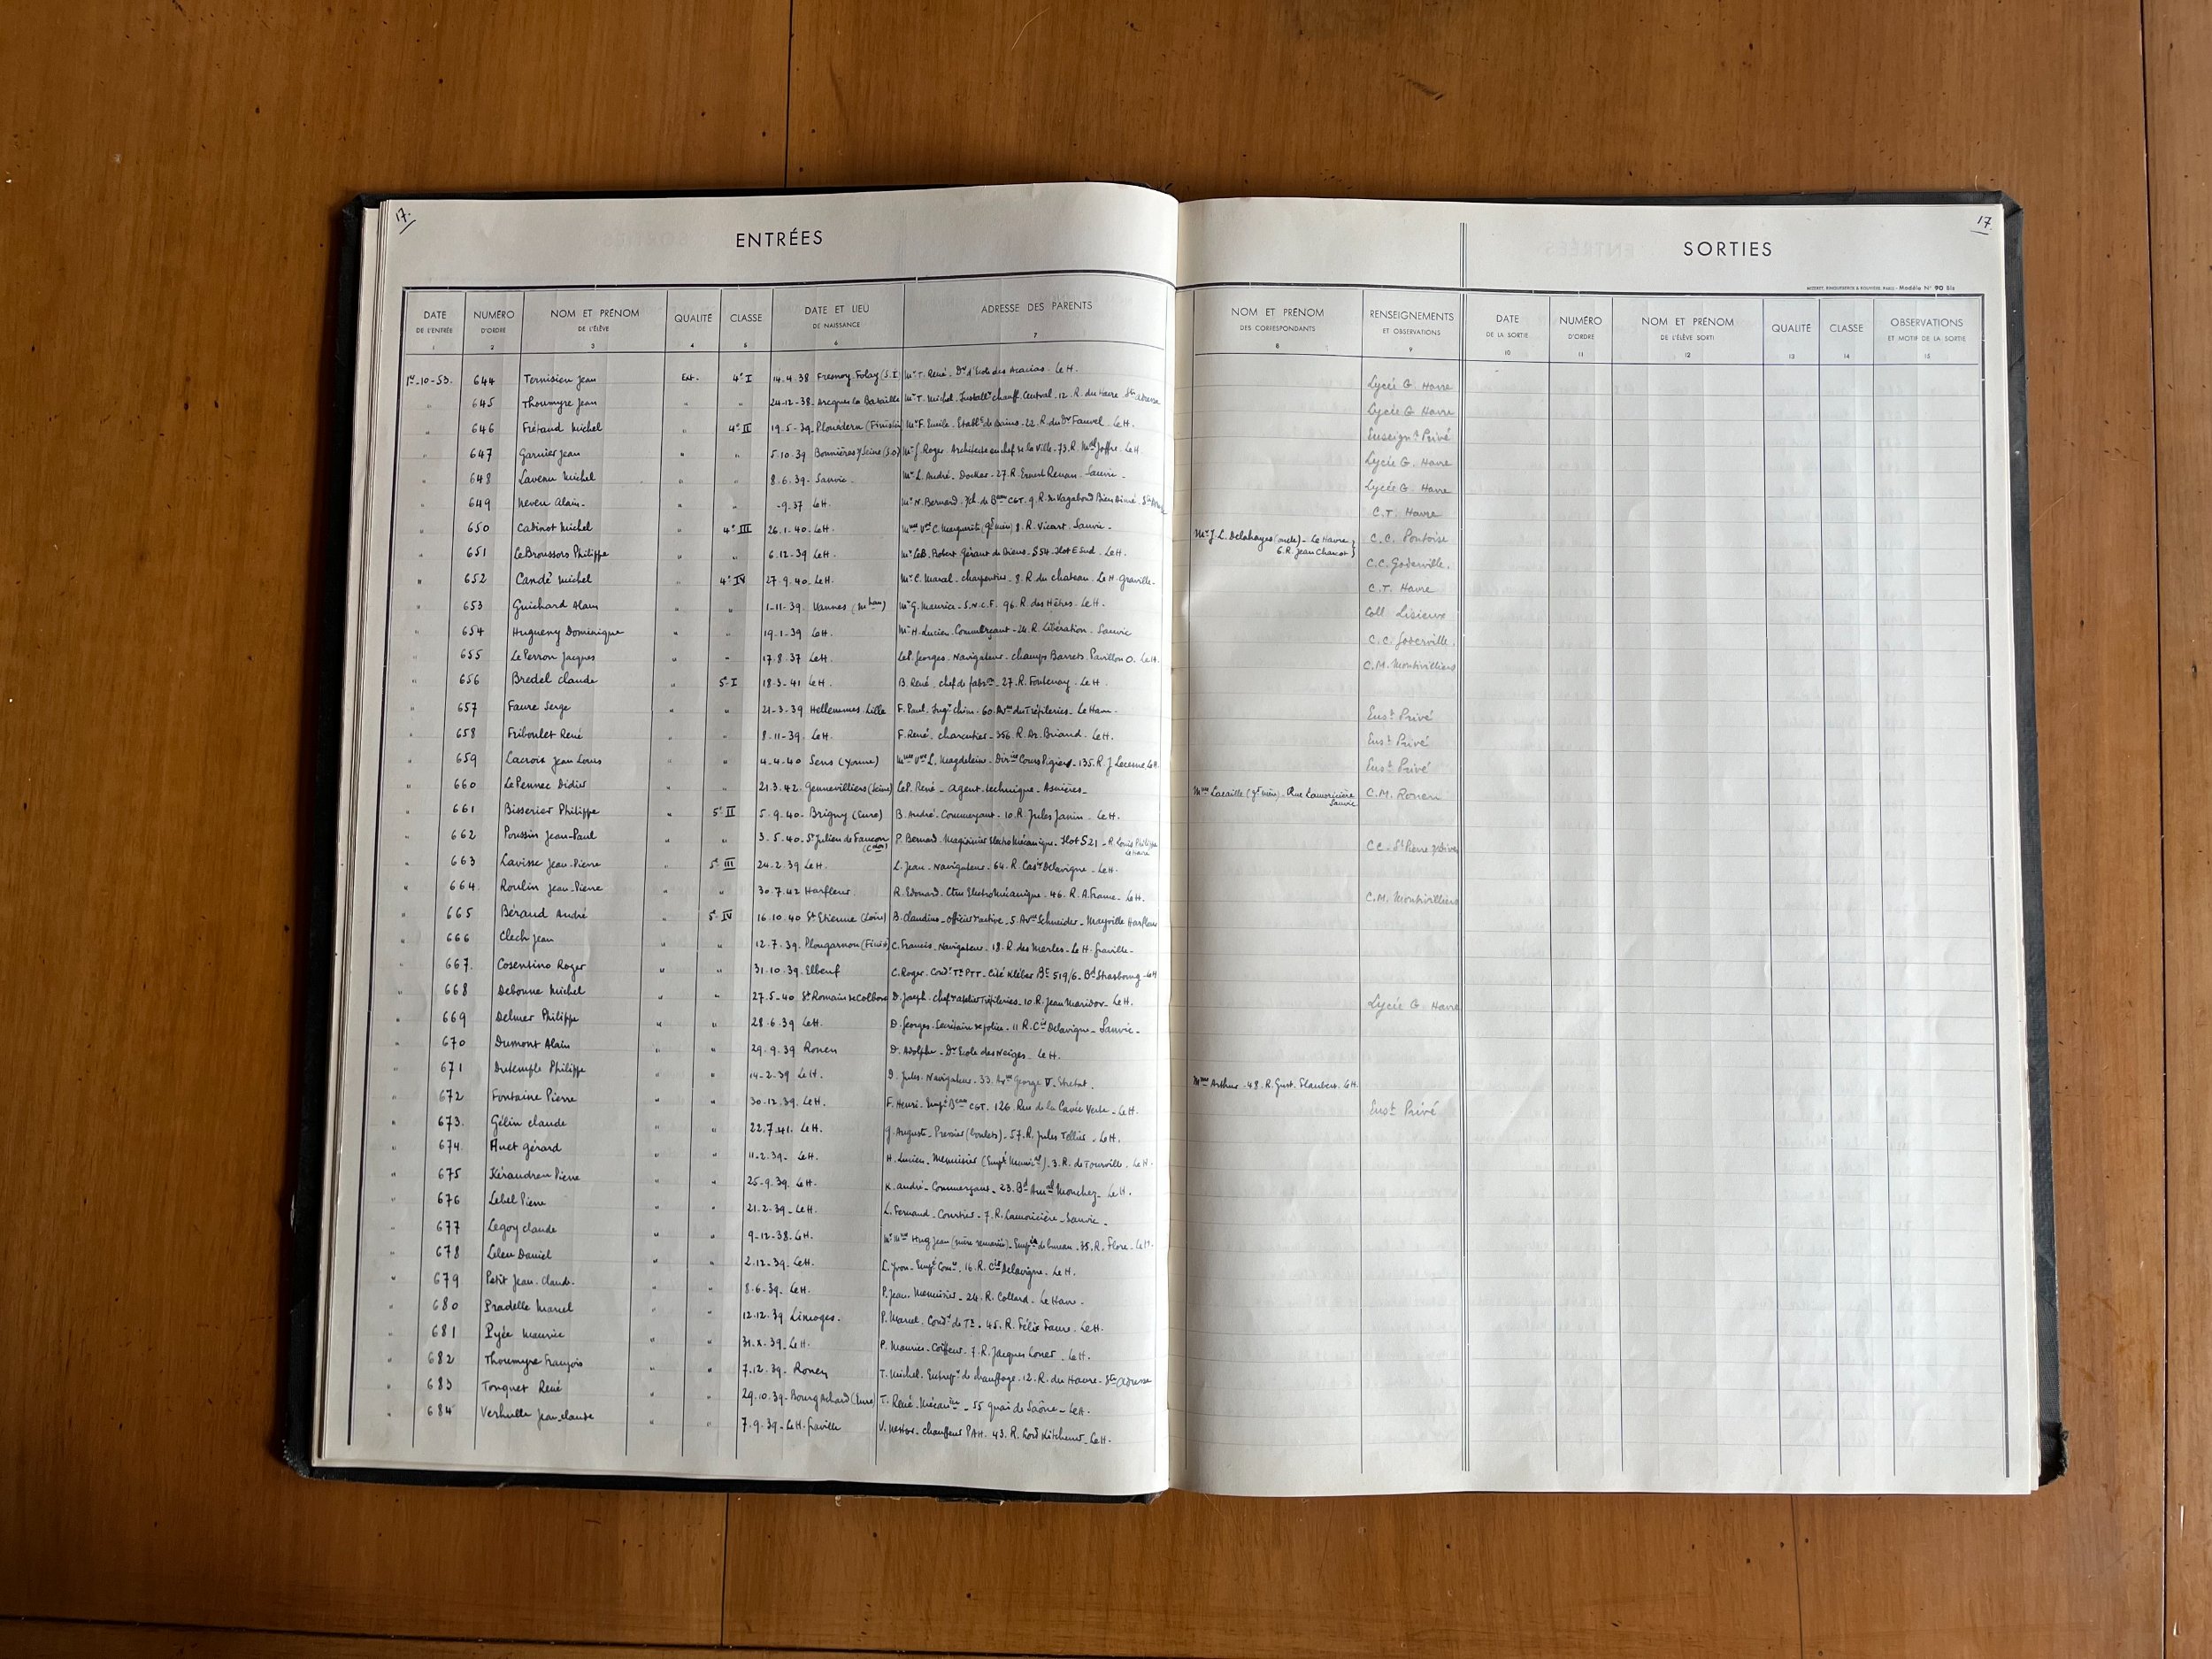 17.
ENTRÉES
DATE DE L'ENTRÉE 1 NUMÉRO D'ORDRE 2 NOM ET PRÉNOM DE L'ÉLÈVE 3 QUALITÉ 4 CLASSE 5 DATE ET LIEU DE NAISSANCE 6 ADRESSE DES PARENTS 7
1er-10-53. 644 Ternisien Jean Ext. 4e I 14.4.38 Fresnoy Folny (S.I) Mr T. René. Dr d'Ecole des Acacias. Le H.
" 645 Thoumyre Jean " " 24-12-38. Arcques la Bataille Mr T. Michel. Installr chauff. Central. 12. R. du Havre. Ste Adresse
" 646 Frétaud Michel " 4e II 19.5-39. Plouédern (Finistère) Mr F. Emile. Etablt de bains. 22. R. du Dr Fauvel. Le H.
" 647 Garnier Jean " " 5.10.39 Bonnières s/Seine (S.O) Mr G. Roger. Architecte en chef de la Ville. 73. R. Mal Joffre. Le H.
" 648 Laveau Michel " " 8.6.39. Sanvic. Mr L. André. Docker. 27. R. Ernest Renan. Sanvic.
" 649 Neveu Alain. " " -9.37 Le H. Mr N. Bernard. CGT. 9. R. du Vagabond Bien Aimé.
" 650 Cabinot Michel " 4e III 26.1.40. Le H. Mme Vve C. Marguerite (gd mère) 8. R. Vicart. Sanvic.
" 651 Le Broussois Philippe " " 6.12-39 Le H. Mr LeB. Robert Gérant de S54. Ilot E Sud. Le H.
" 652 Candé Michel " 4e IV 27.9.40. Le H. Mr C. Marcel. charpentier. 8. R. du chateau. Le H. Graville.
" 653 Guichard Alain " " 1-11-39. Vannes (Mhan) Mr G. Maurice. S.N.C.F. 96. R. des Hêtres. Le H.
" 654 Hugueny Dominique " " 19.1-39 Le H. Mr H. Lucien. Commerçant. 24. R. Libération. Sanvic
" 655 Le Perron Jacques " " 17.8.37 Le H. LeP. Georges. Navigateur. champs Barrets. Pavillon O. Le H.
" 656 Bredel claude " 5e I 18.3-41 Le H. B. René. chef de fabron. 27. R. Fontenoy. Le H.
" 657 Faure Serge " " 21-3-39 Hellemmes. Lille F. Paul. Ingr chim. 60. Avue du Tréfileries. Le Havre.
" 658 Friboulet René " " 8.11-39. Le H. F. René. charcutier. 356. R. Ar. Briand. Le H.
" 659 Lacroix Jean Louis " " 4.4.40 Sens (Yonne) Mme Vve L. Magdeleine. Dirice Cours Pigier. 135. R. J. Lecesne. Le H.
" 660 Le Pennec Didier " " 21.3.42. Gennevilliers (Seine) LeP. René. agent technique. Asnières.
" 661 Bisserier Philippe " 5e II 5.9.40. Brigny (Eure) B. André. Commerçant. 10. R. Jules Janin. Le H.
" 662 Poussin Jean-Paul " " 3.5.40. St Julien de Faucon (Cdos) P. Bernard. Magasinier Electro Mécanique. Ilot S21. R. Louis Philippe Le Havre
" 663 Lavisse Jean-Pierre " 5e III 24.2.39 Le H. L. Jean. Navigateur. 64. R. Casr Delavigne. Le H.
" 664. Roulin Jean-Pierre " " 30.7.42 Harfleur. R. Edouard. Electro Mécanique. 46. R. A. France. Le H.
" 665 Béraud André " 5e IV 16.10.40 St Etienne (Loire) B. Claudius. officier d'active. 5. Avue Schneider. Mayville Harfleur
" 666 Clech Jean " " 12.7.39. Plougasnou (Finist) C. Francis. Navigateur. 18. R. des Merles. Le H. Graville.
" 667. Cosentino Roger " " 31.10.39. Elbeuf C. Roger. Condr Tx PTT. Cité Kléber Bt 519/6. Bd Strasbourg. Le H
" 668 Debonne Michel " " 27.5-40 St Romain de Colbosc D. Joseph. chef d'atelier Tréfileries. 10. R. Jean Maridor. Le H.
" 669 Delmer Philippe " " 28.6.39 Le H. D. Georges. Secrétaire de police. 11 R. Cir Delavigne. Sanvic.
" 670 Dumont Alain " " 29.9.39 Rouen D. Adolphe. Dr Ecole des Neiges. Le H.
" 671 Dutemple Philippe " " 14-2.39 Le H. D. Jules. Navigateur. 33. Avue George V. Etretat.
" 672 Fontaine Pierre " " 30.12.39. Le H. F. Henri. Empé Beau CGT. 126. Rue de la Cavée Verte. Le H.
" 673. Gélin claude " " 22.7.41. Le H. G. Auguste. Pressier (boulets). 57. R. Jules Tellier. Le H.
" 674. Huet gérard " " 11-2.39. Le H. H. Lucien. Menuisier (Empé Munical). 3. R. de Tourville. Le H.
" 675 Kéraudren Pierre " " 25-9.39. Le H. K. André. Commerçant. 23. Bd Amal Mouchez. Le H.
" 676 Lebel Pierre " " 21.2.39. Le H. L. Fernand. Courtier. 7. R. Lamoricière. Sanvic.
" 677 Legoy claude " " 9-12-38. Le H. Mr Mme Hug Jean (mère remariée). Empée de bureau. 35. R. Flore. Le H.
" 678 Leleu Daniel " " 2.12-39. Le H. L. Yvon. Empé Come. 16. R. Cir Delavigne. Le H.
" 679 Petit Jean-Claude. " " 8.6.39. Le H. P. Jean. Menuisier. 24. R. Collard. Le Havre.
" 680 Pradelle Marcel " " 12.12.39 Limoges. P. Marcel. Condr de Tx. 45. R. Félix Faure. Le H.
" 681 Pyée Maurice " " 31.X.39. Le H. P. Maurice. Coiffeur. 7. R. Jacques Louer. Le H.
" 682 Thoumyre François " " 7.12.39. Rouen T. Michel. Entrepr de chauffage. 12. R. du Havre. Ste Adresse
" 683 Touquet René " " 29.10.39. Bourg Achard (Eure) T. René. Mécanien. 55 quai de Saône. Le H.
" 684 Verhulle Jean-claude " " 7.9.39. Le H. Graville V. Nestor. chauffeur PAH. 43. R. Lord Kitchener. Le H.
17
SORTIES
Modèle N° 90 Bis
NOM ET PRÉNOM DES CORRESPONDANTS 8 RENSEIGNEMENTS ET OBSERVATIONS 9 DATE DE LA SORTIE 10 NUMÉRO D'ORDRE 11 NOM ET PRÉNOM DE L'ÉLÈVE SORTI 12 QUALITÉ 13 CLASSE 14 OBSERVATIONS ET MOTIF DE LA SORTIE 15
Lycée G. Havre
Lycée G. Havre
Enseignt Privé
Lycée G. Havre
Lycée G. Havre
C.T. Havre
Mr J.L. Delahayes (oncle) - Le Havre C.C. Pontoise
6. R. Jean Charcot
C.C. Goderville.
C.T. Havre
Coll. Lisieux
C.C. Goderville.
C.M. Montivilliers
Enst Privé
Enst Privé
Enst Privé
Mme Lacaille (gd mère). Rue Lamoricière Sanvic C.M. Rouen
C.C. St Pierre s/Dives
C.M. Montivilliers
Lycée G. Havre
Mme Arthur. 48. R. Gust. Flaubert. Le H.
Enst Privé